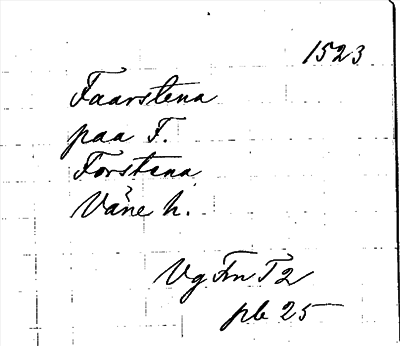 1523
Faarstena
paa F.
Forstena
Väne h.
Vg Fm T2
pb 25